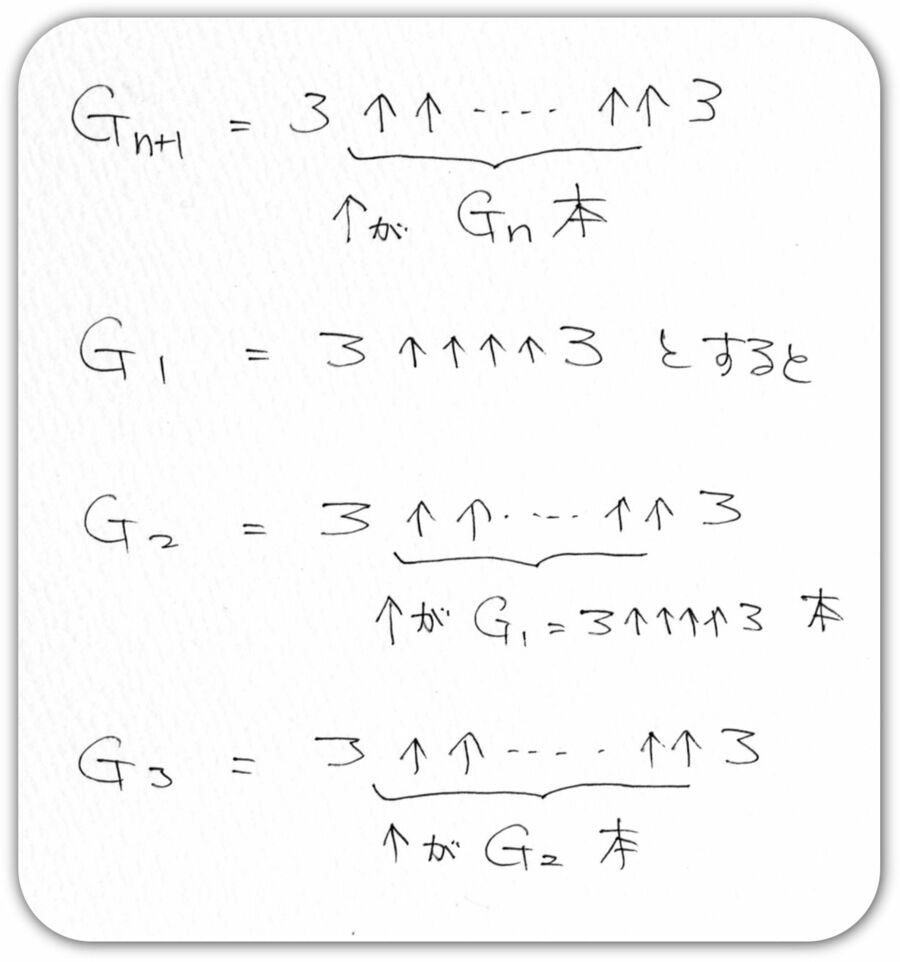 Gn+1 = 3 ↑↑ ---- ↑↑ 3
↑が Gn 本
G1 = 3 ↑↑↑↑ 3 とすると
G2 = 3 ↑↑ ---- ↑↑ 3
↑が G1 = 3↑↑↑↑3 本
G3 = 3 ↑↑ ---- ↑↑ 3
↑が G2 本